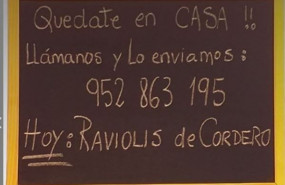 Quedate en CASA !!
Llámanos y Lo enviamos:
952 863 195
HOY: RAVIOLIS de CORDERO